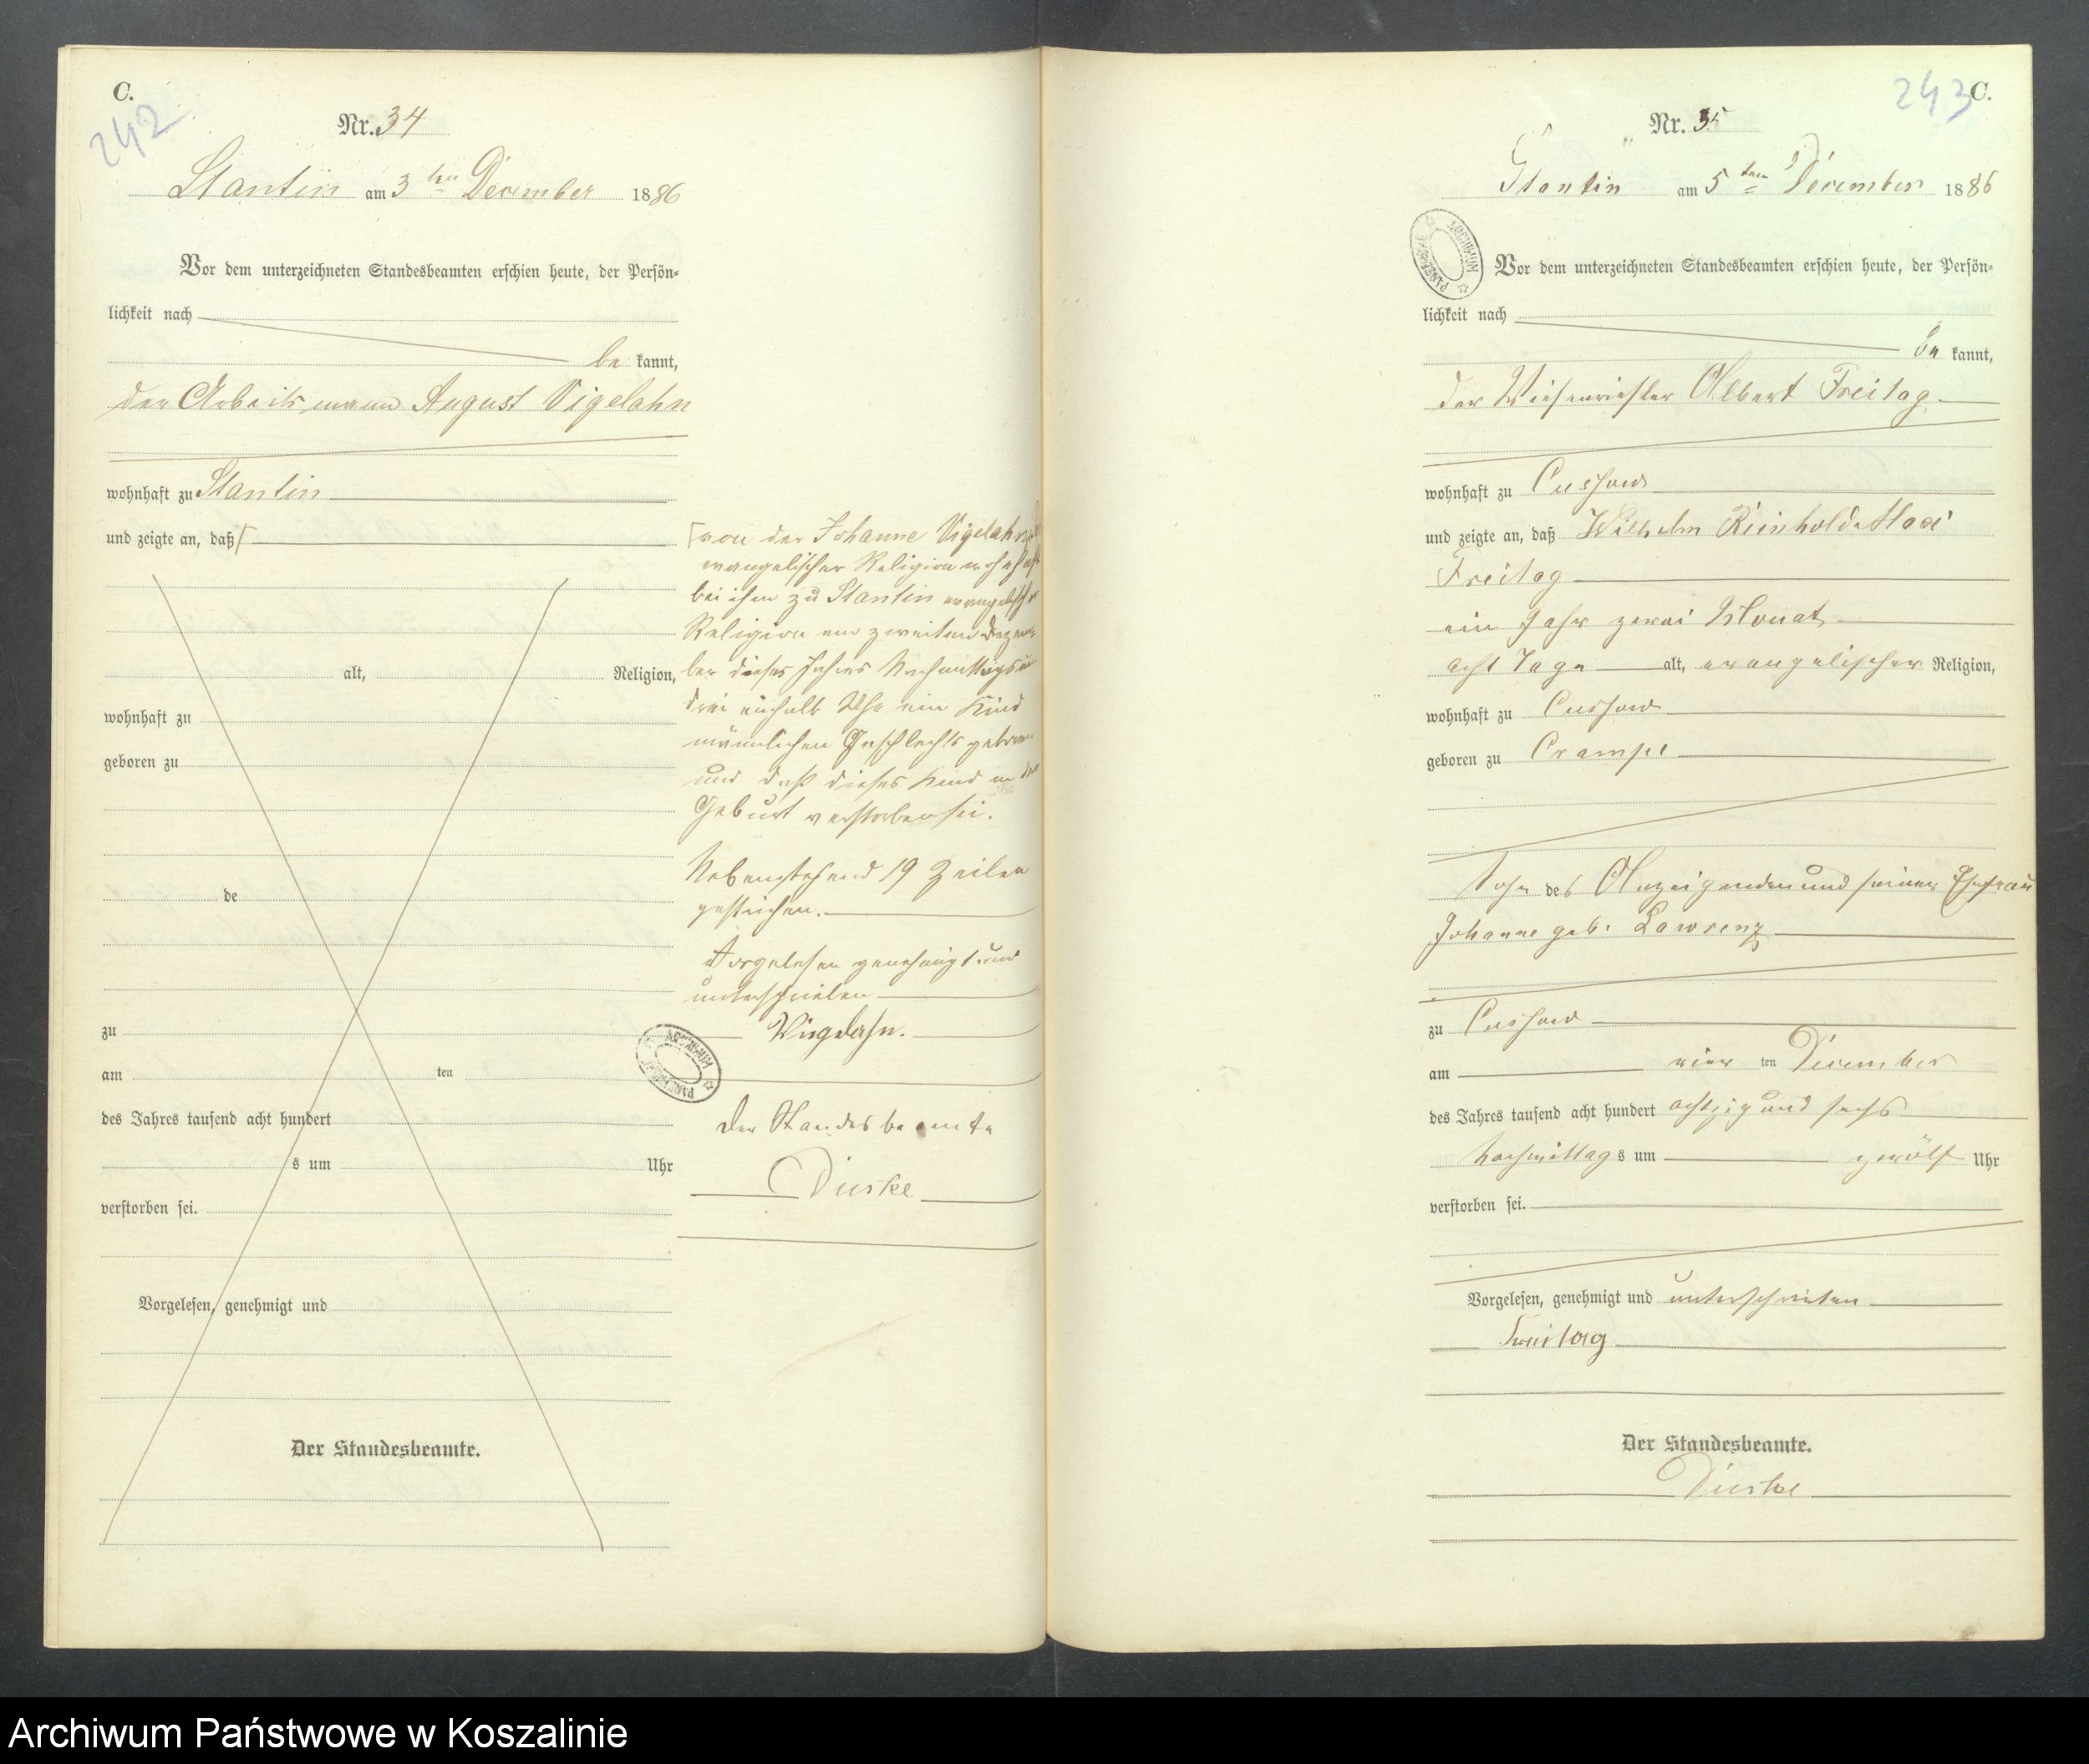 C.
242
Nr. 34
Stantin am 3ten December 1886
Vor dem unterzeichneten Standesbeamten erschien heute, der Persön-
lichkeit nach
be kannt,
der Arbeitsmann August Vigelahn
wohnhaft zu Stantin
und zeigte an, daß
alt, Religion,
wohnhaft zu
geboren zu
de
zu
am ten
des Jahres tausend acht hundert
s um Uhr
verstorben sei.
Vorgelesen, genehmigt und
Der Standesbeamte.
von der Johanne Vigelahn
evangelischer Religion wohnhaft
bei ihm zu Stantin evangelischer
Religion am zweiten Dezem-
ber dieses Jahres Nachmittags um
drei einhalb Uhr ein Kind
männlichen Geschlechts geboren
und daß dieses Kind in der
Geburt verstorben sei.
Nebenstehend 19 Zeilen
gestrichen.
Vorgelesen genehmigt und
unterschrieben
Vigelahn.
Der Standesbeamte
Dieske
ARCHIWUM PAŃSTWOWE
C.
243
Nr. 35
Stantin am 5ten December 1886
ARCHIWUM PAŃSTWOWE
Vor dem unterzeichneten Standesbeamten erschien heute, der Persön-
lichkeit nach
be kannt,
der Albert Freitag
wohnhaft zu Cussow
und zeigte an, daß Wilhelm Reinhold Maxi
Freitag
ein Jahr zwei Monat
acht Tage alt, evangelischer Religion,
wohnhaft zu Cussow
geboren zu Crampe
Sohn des Anzeigenden und seiner Ehefrau
Johanne geb. Lawrenz
zu Cussow
am vier ten December
des Jahres tausend acht hundert achtzig und sechs
Nachmittag s um zwölf Uhr
verstorben sei.
Vorgelesen, genehmigt und unterschrieben
Freitag
Der Standesbeamte.
Dieske
Archiwum Państwowe w Koszalinie